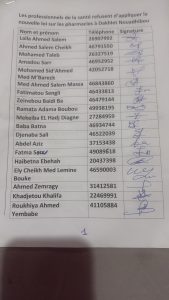 Les professionels de la santé refusent d'appliquer la
nouvelle loi sur les pharmacies à Dakhlet Nouadhibou
Nom et prénom Téléphone Signature
Lalla Ahmed Salem 26907992
Ahmed Salem Cheikh 46791550
Mohamed Taleb 26327519
Amadou Sarr 46952912
Mohamed Sid'Ahmed 42052718
Med M'Bareck
Med Ahmed Salem Massa 46843860
Fatimatou Sengh 46433813
Zeinebou Baidi Be 46479144
Ramata Adama Boubou 49938195
Mobeiba EL Hadj Diagne 27284959
Baba Batna 46934744
Djenaba Sall 46522039
Abdel Aziz 37153438
Fatma 49089618
Haibetna Ebehah 20437398
Ely Cheikh Med Lemine 46590003
Bouke
Ahmed Zemragy 31412581
Khadjetou Khalifa 22469991
Roukhiya Ahmed 41105884
Yembabe
1